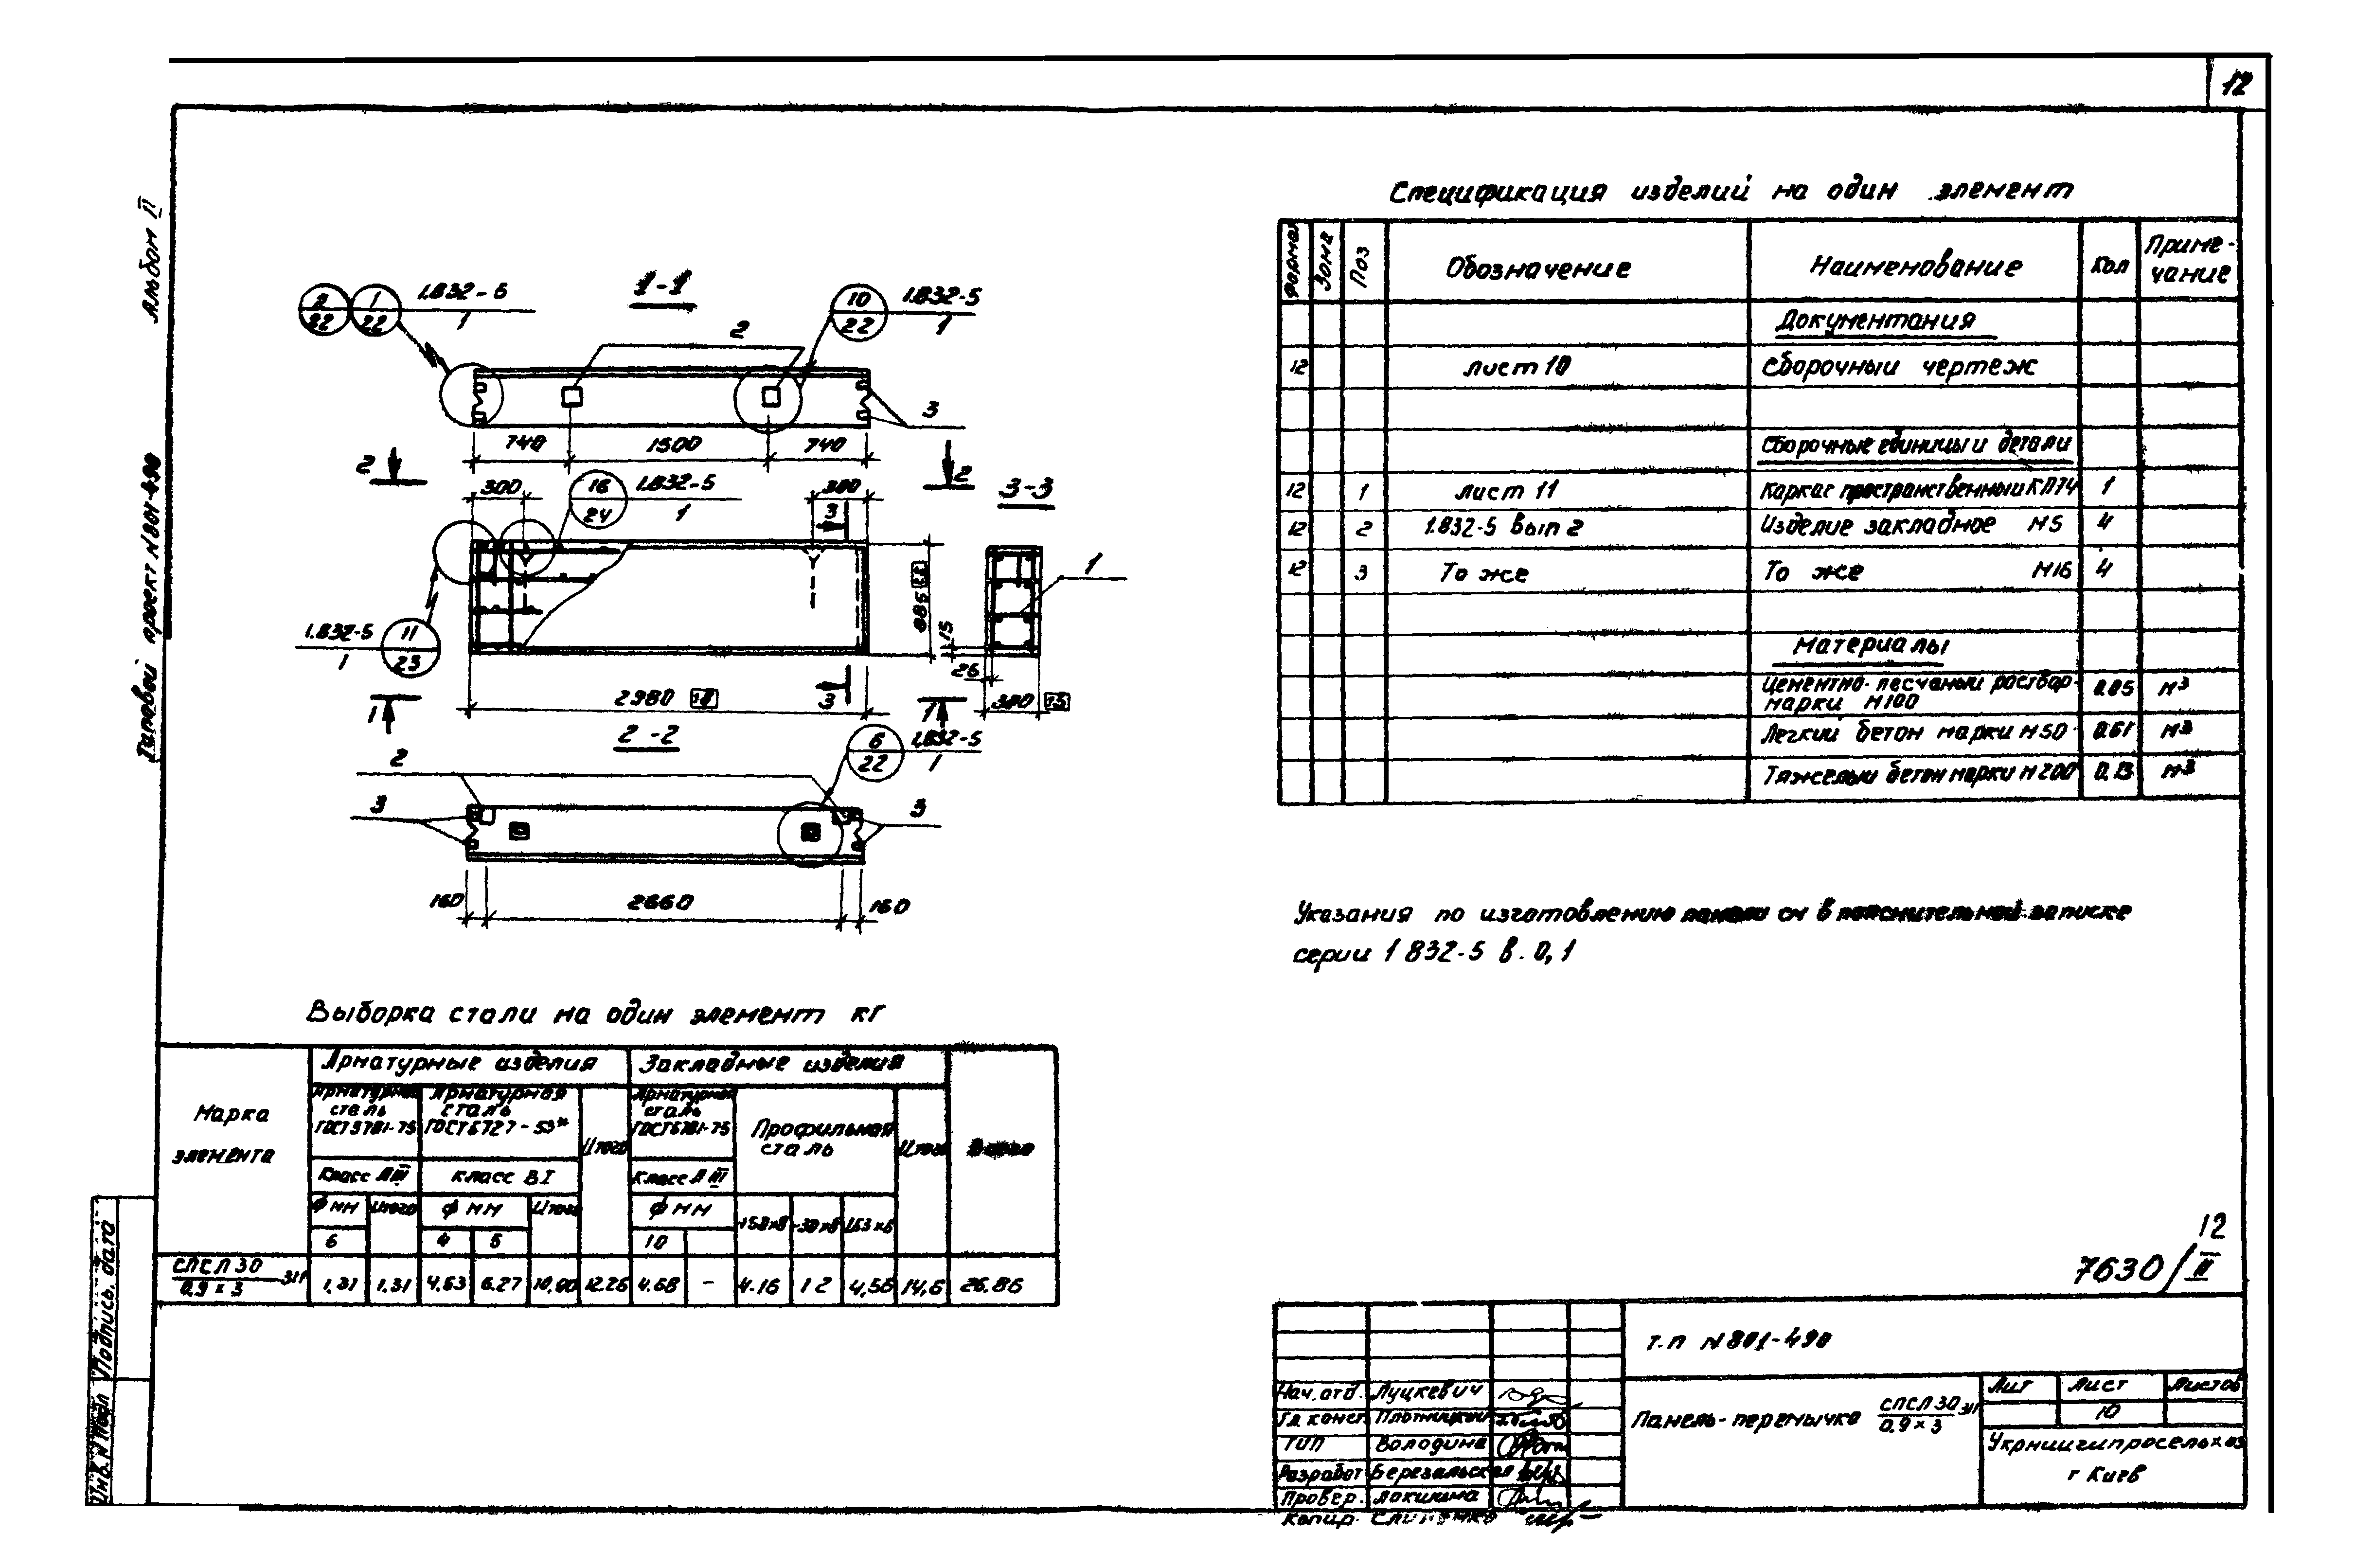 12
Альбом II
Типовой проект N 801-490
Инв. N подл
Подпись, дата
1-1
2/22
1/22
1.832-5
1
10/22
1.832-5
1
2
3
740
1500
740
2
2
300
16/24
1.832-5
1
300
3
3-3
1
885
15
1.832-5
1
11/23
26
2980
3
300
1
1
2-2
6/22
1.832-5
1
2
3
3
160
2660
160
Спецификация изделий на один элемент
Формат
Зона
Поз
Обозначение
Наименование
Кол
Приме-
чание
Документация
12 лист 10 Сборочный чертеж
Сборочные единицы и детали
12 1 лист 11 Каркас пространственный КП74 1
12 2 1.832-5 вып 2 Изделие закладное М5 4
12 3 То же То же М16 4
Материалы
Цементно-песчаный раствор
марки М100 0.05 м3
Легкий бетон марки М50 0.61 м3
Тяжелый бетон марки М200 0.13 м3
Указания по изготовлению панели см в пояснительной записке
серии 1 832-5 в. 0,1
Выборка стали на один элемент кг
Марка
элемента
Арматурные изделия
Закладные изделия
Всего
Арматурная
сталь
ГОСТ 5781-75
Арматурная
сталь
ГОСТ 6727-53*
Итого
Арматурная
сталь
ГОСТ 5781-75
Профильная
сталь
Итого
Класс АIII
класс ВI
Класс АIII
Ф мм
Итого
Ф мм
Итого
Ф мм
-150×8
-30×8
L63×5
6
4
5
10
СПСЛ 30
0.9 × 3
-311
1.31 1.31 4.63 6.27 10,90 12.26 4.68 - 4.16 1 2 4,56 14,6 26.86
12
7630/II
т.п N 801-490
Нач. отд. Луцкевич
Гл. конст. Плотницкий
ГИП Володина
Разработ Березальская
Провер. Локшина
Копир. Слипенко
Панель-перемычка СПСЛ 30
0.9 × 3
-311
Лит Лист Листов
10
Укрниигипросельхоз
г Киев